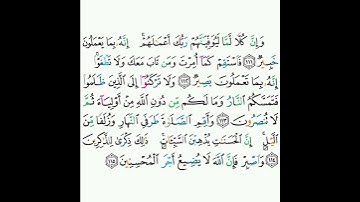 وَإِنَّ كُلًّا لَّمَّا لَيُوَفِّيَنَّهُمْ رَبُّكَ أَعْمَالَهُمْ ۚ إِنَّهُ بِمَا يَعْمَلُونَ
خَبِيرٌ ١١١ فَاسْتَقِمْ كَمَا أُمِرْتَ وَمَن تَابَ مَعَكَ وَلَا تَطْغَوْا ۚ
إِنَّهُ بِمَا تَعْمَلُونَ بَصِيرٌ ١١٢ وَلَا تَرْكَنُوا إِلَى الَّذِينَ ظَلَمُوا
فَتَمَسَّكُمُ النَّارُ وَمَا لَكُم مِّن دُونِ اللَّهِ مِنْ أَوْلِيَاءَ ثُمَّ
لَا تُنصَرُونَ ١١٣ وَأَقِمِ الصَّلَاةَ طَرَفَيِ النَّهَارِ وَزُلَفًا مِّنَ
الَّيْلِ ۚ إِنَّ الْحَسَنَاتِ يُذْهِبْنَ السَّيِّئَاتِ ۚ ذَٰلِكَ ذِكْرَىٰ لِلذَّاكِرِينَ
١١٤ وَاصْبِرْ فَإِنَّ اللَّهَ لَا يُضِيعُ أَجْرَ الْمُحْسِنِينَ ١١٥